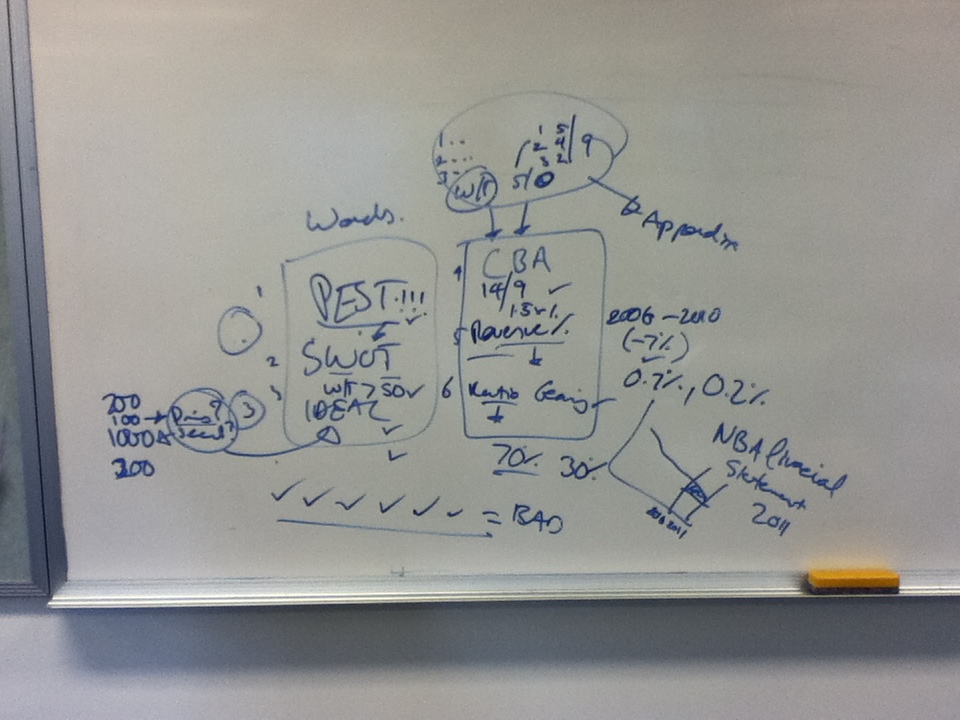 1 ..
2 ...
3
1 5
2 4
3 2
9
5/0
Appendix
Words.
1
PEST!!!
2
SWOT
3
IDEAL
200
100
1000
300
3
4
CBA
14/9
5
Revenue %
6
Ratio Gearing
70% 30%
2006 - 2010
(-7%)
0.7%, 0.2%
NBA financial
Statement
2011
2006 2011
= BAD